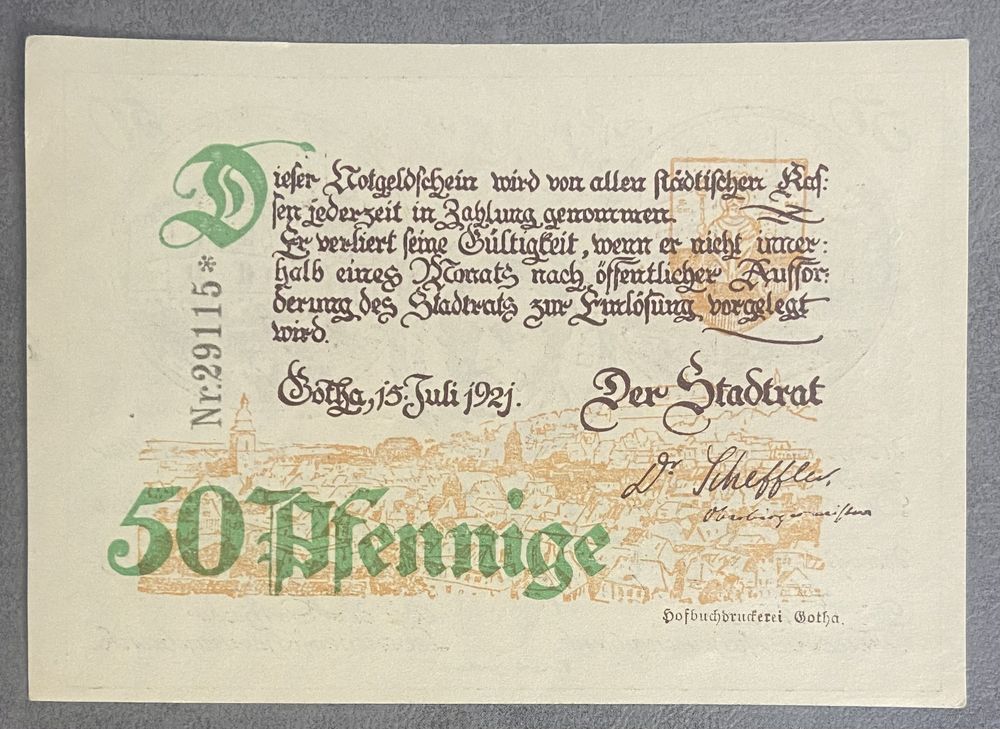 Dieser Notgeldschein wird von allen städtischen Kas:
sen jederzeit in Zahlung genommen.
Er verliert seine Gültigkeit, wenn er nicht inner:
halb eines Monats nach öffentlicher Auffor:
derung des Stadtrats zur Einlösung vorgelegt
wird.
Nr. 29115*
Gotha, 15. Juli 1921.
Der Stadtrat
Dr. Scheffler,
Oberbürgermeister
50 Pfennige
Hofbuchdruckerei Gotha.